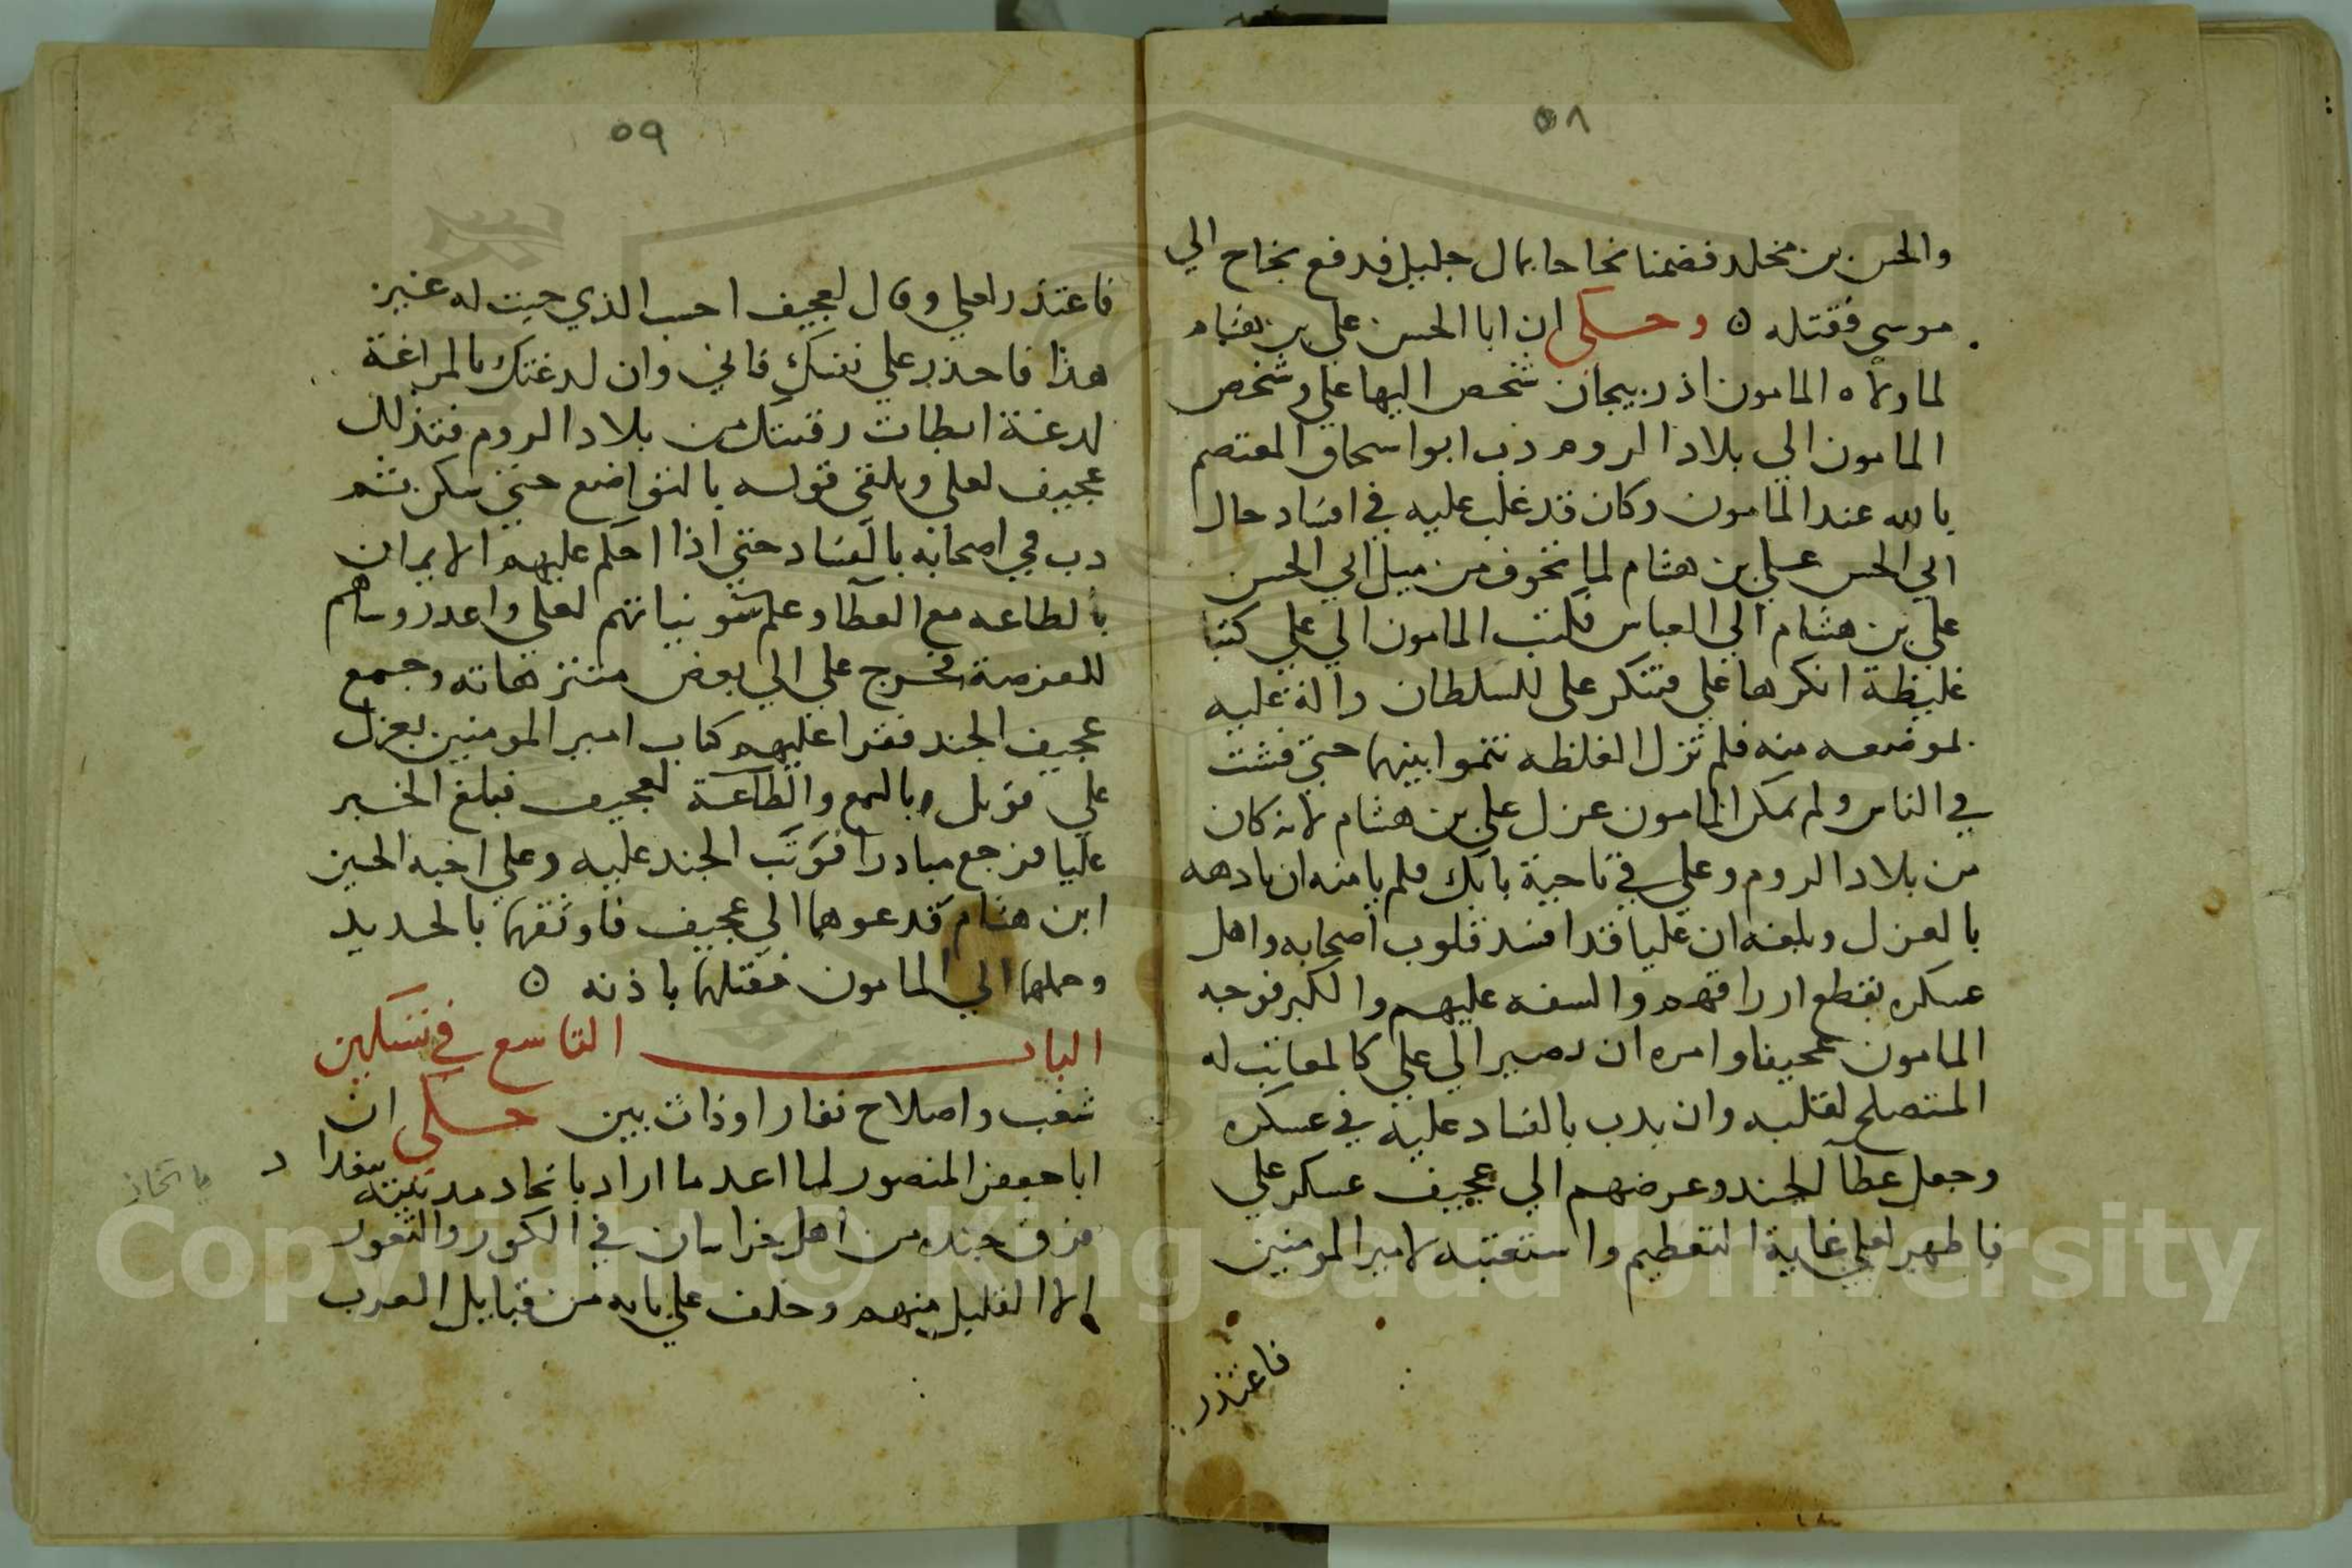 ٥٨
والحسن بن مخلد فضمنا نجاحا بمال جليل فدفع نجاح الي
موسي فقتله ه وحكي ان ابا الحسن علي بن هشام
لما ولاه المامون اذربيجان شخص اليها علي وشخص
المامون الي بلاد الروم دب ابوا سحاق المعتصم
بالله عند المامون وكان قد غلب عليه في افساد حال
ابي الحسن علي بن هشام لما تخوف من ميل ابي الحسن
علي بن هشام الي العباس فكتب المامون الي علي كتبا
غليظة انكرها علي فتنكر علي للسلطان والة عليه
لموضعه منه فلم تزل الغلظه تنموا بينهما حتي فشت
في الناس ولم يمكن المامون عزل علي بن هشام لانه كان
من بلاد الروم وعلي في ناحية بابك فلم يامنه ان بادهه
بالعزل وبلغه ان عليا قد افسد قلوب اصحابه واهل
عسكره بقطع ارزاقهم والسفه عليهم والكبر فوجه
المامون عجيفا وامره ان يصير الي علي كالمعاتب له
المتصلح لقلبه وان يدب بالفساد عليه في عسكره
وجعل عطآ الجند وعرضهم الي عجيف عسكر علي
فاظهر لعلي غاية التعظيم واستعتبه لامير المومنين
فاعتذر
٥٩
فاعتذر لعلي وقال لعجيف احسب الذي حيت له غير
هذا فاحذر علي نفسك فاني وان لدغتك بالمراغة
لدغة ابطات رقيتك من بلاد الروم فتذلل
عجيف لعلي ويلقي قوله بالتواضع حتي سكن ثم
دب في اصحابه بالفساد حتي اذا احكم عليهم الامران
بالطاعه مع العطآ وعلم سو نياتهم لعلي واعد روساهم
للفرصة فخرج علي الي بعض متنزهاته وجمع
عجيف الجند فقرا عليهم كتاب امير المومنين بعزل
علي فوبل بالسمع والطاعة لعجيف فبلغ الخبر
عليا فرجع مبادرا فوثب الجند عليه وعلي اخيه الحسين
ابن هشام فدعوهما الي عجيف فاوثقهما بالحديد
وحملهما الي المامون فقتلهما باذنه ه
الباب التاسع في تسكين
شغب واصلاح نفار او ذات بين حكي ان
ابا جعفر المنصور لما اعد ما اراد باتخاد مدينته ببغداد
فرق جنده من اهل خراسان في الكور والثغور
الا القليل منهم وخلف علي بابه من قبايل العرب
باتخاذ
Copyright © King Saud University